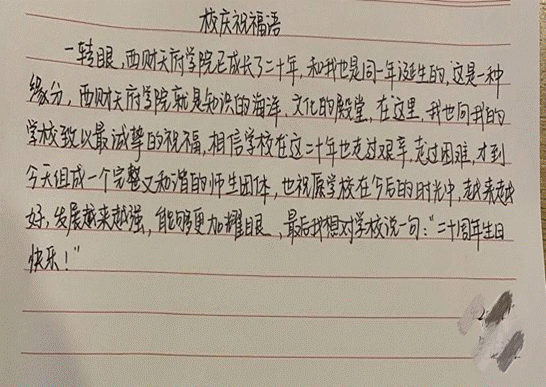 校庆祝福语
一转眼，西财天府学院已成长了二十年，和我也是同一年诞生的，这是一种
缘分，西财天府学院就是知识的海洋、文化的殿堂，在这里，我也向我的
学校致以最诚挚的祝福，相信学校在这二十年也走过艰辛，走过困难，才到
今天组成一个完整又和谐的师生团体，也祝愿学校在今后的时光中，越来越
好，发展越来越强，能够更加耀眼，最后我想对学校说一句："二十周年生日
快乐！"